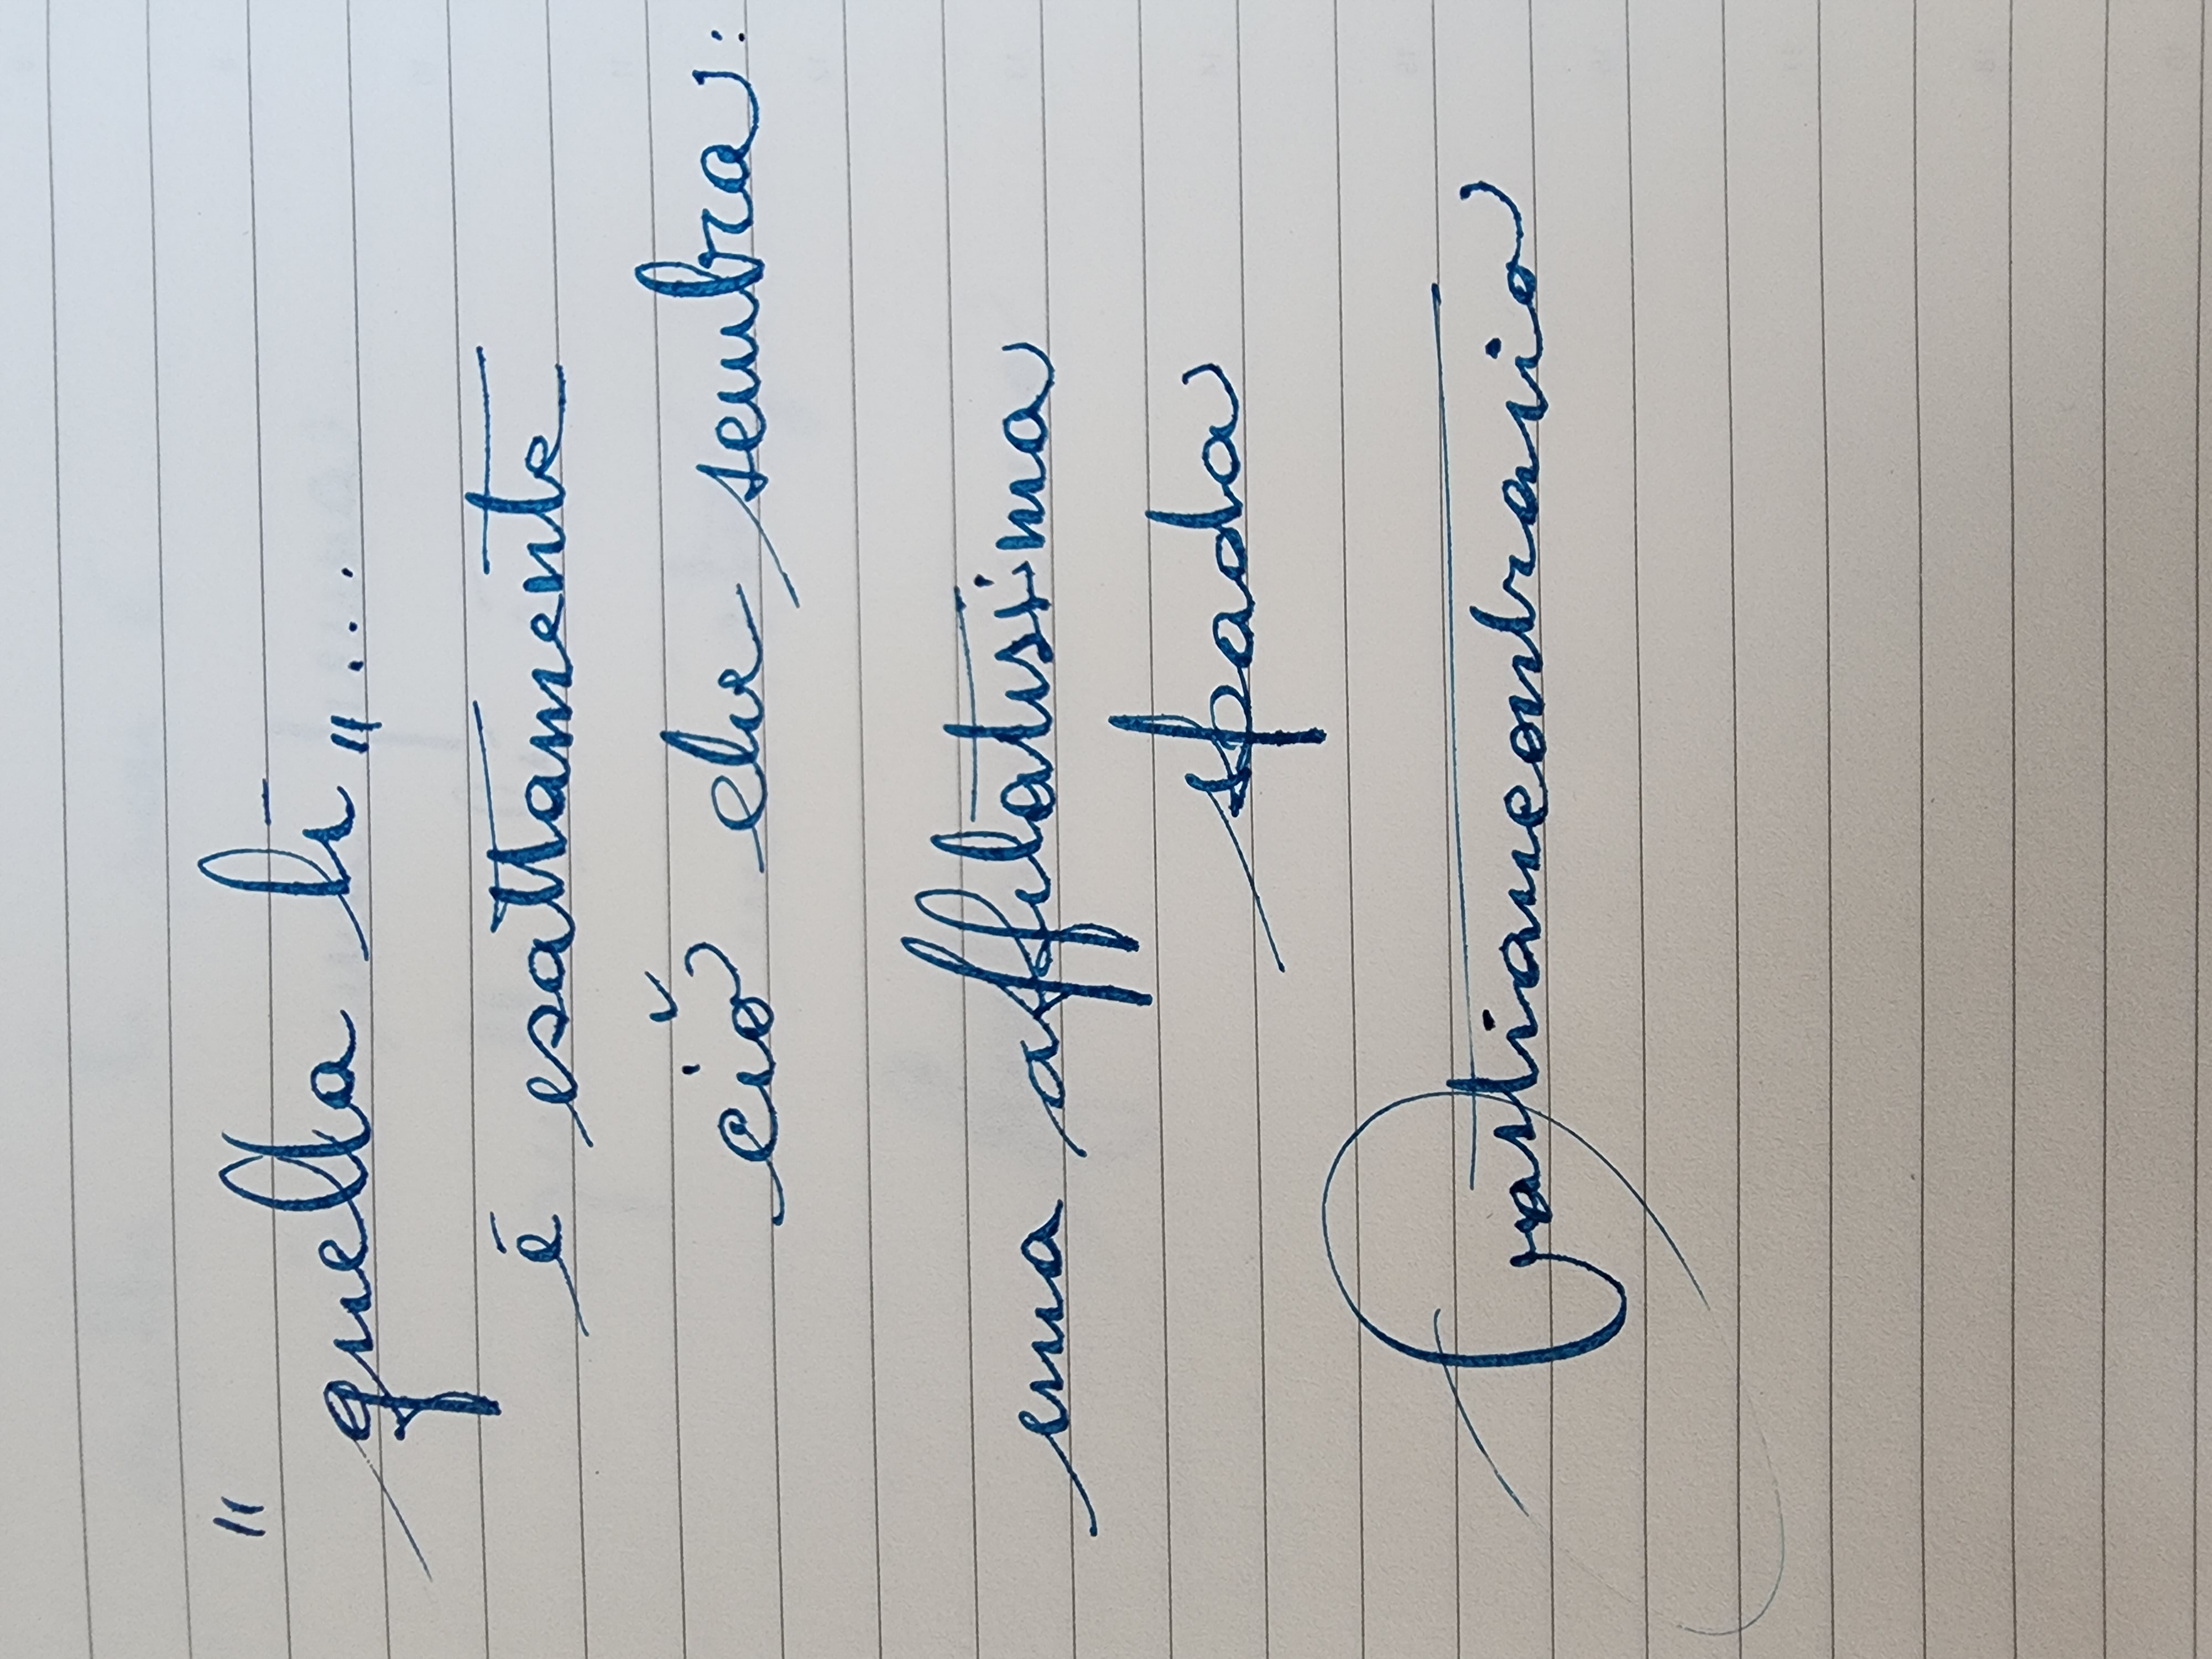 "quella lì"...
è esattamente
ciò che sembra:
una affilatissima
spada